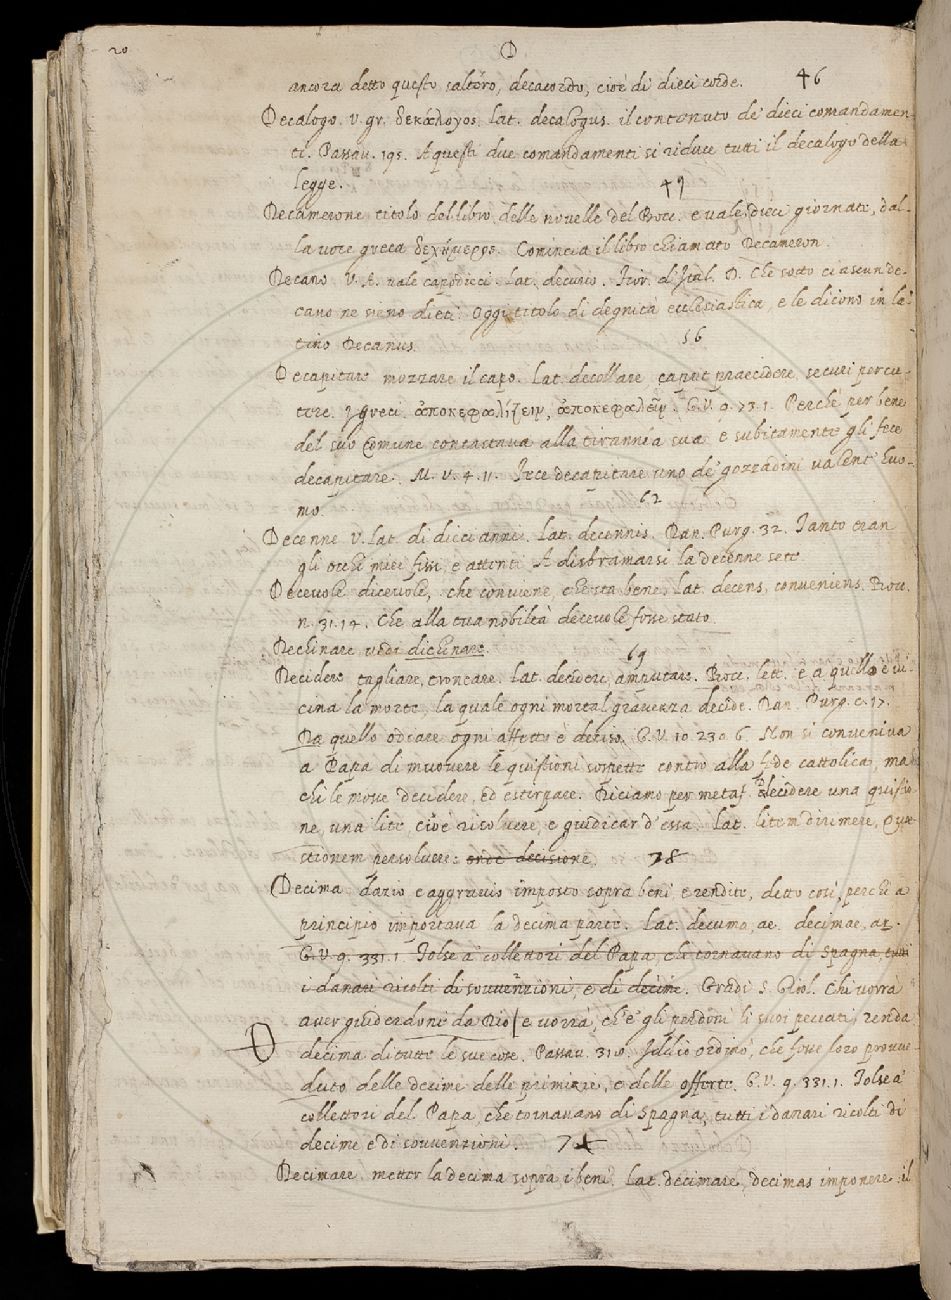 20 D
ancora detto questo saltéro, decacordo, cioè di dieci corde. 46
Decalogo. v. gr. δεκάλογος. lat. decalogus. il contenuto de' dieci comandamen-
ti. Passau. 195. A questi due comandamenti si riduce tutti il decalogo della
legge. 49
Decamerone, titolo del libro delle novelle del Bocc. e vale dieci giornate, dal-
la voce greca δεχήμερος. Comincia il libro chiamato Decameron.
Decano V. A. vale capodieci. Lat. decurio. Fior. d'Ital. D. Che sotto ciascun de-
cano ne sieno dieci. Oggi titolo di degnità ecclesiastica, e le dicono in la-
tino Decanus. 56
Decapitare mozzare il capo. Lat. decollare, caput praecidere, securi percu-
tere. I greci, ἀποκεφαλίζειν, ἀποκεφαλεῖν. G.V. 9. 73. 1. Perchè per bene
del suo Comune contastava alla tirannía sua e subitamente gli fece
decapitare. M. V. 4. 11. Fece decapitare uno de' gozzadini valent' huo-
mo. 62
Decenne V. Lat. di dieci anni. Lat. decennis. Dan. Purg. 32. Tanto eran
gli occhi miei fissi, e attenti A disbramarsi la decenne sete
Decevole dicevole, che conviene, che sta bene. Lat. decens, conveniens. Bocc.
n. 31. 14. Che alla tua nobiltà decevole fosse stato.
Dechinare vedi dichinare.
69
Decidere tagliare, troncare. Lat. decidere, amputare. Bocc. lett. e a quella è vi-
cina la morte, la quale ogni mortal gravezza decide. Dan. Purg. c. 17.
Da quello odiare ogni affetto è deciso. G.V. 10. 230. 6. Non si conveniva
a Papa di muovere le quistioni sospette contro alla fede cattolica, ma
chi le move decidere, ed estirpare. Diciamo per metaf. Decidere una quistio-
ne, una lite, cioè risolvere, e giudicar d'essa. Lat. litem dirimere, quae-
stionem persolvere. onde decisione. 78
Decima dazio e aggravio imposto sopra beni, e rendite, detto così, perchè a
principio importava la decima parte. Lat. decuma, ae. decimae, ar.
G.V. 9. 331. 1 Tolse a' collettori del Papa, che tornavano di Spagna, tutti
i danari ricolti di souvenzioni, e di decime. Gradi S. Girol. Chi vorrà
aver guiderdone da Dio, e vorrà, ch' e' gli perdoni li suoi peccati, renda
D decima di tutte le sue cose. Passau. 310. Iddio ordinò, che fosse loro provve-
duto delle decime, delle primizie, e delle offerte. G.V. 9. 331. 1. Tolse a'
collettori del Papa, che tornavano di Spagna, tutti i danari ricolti di
decime e di souvenzioni.
Decimare, metter la decima sopra i beni. Lat. decimare, decimas imponere. il